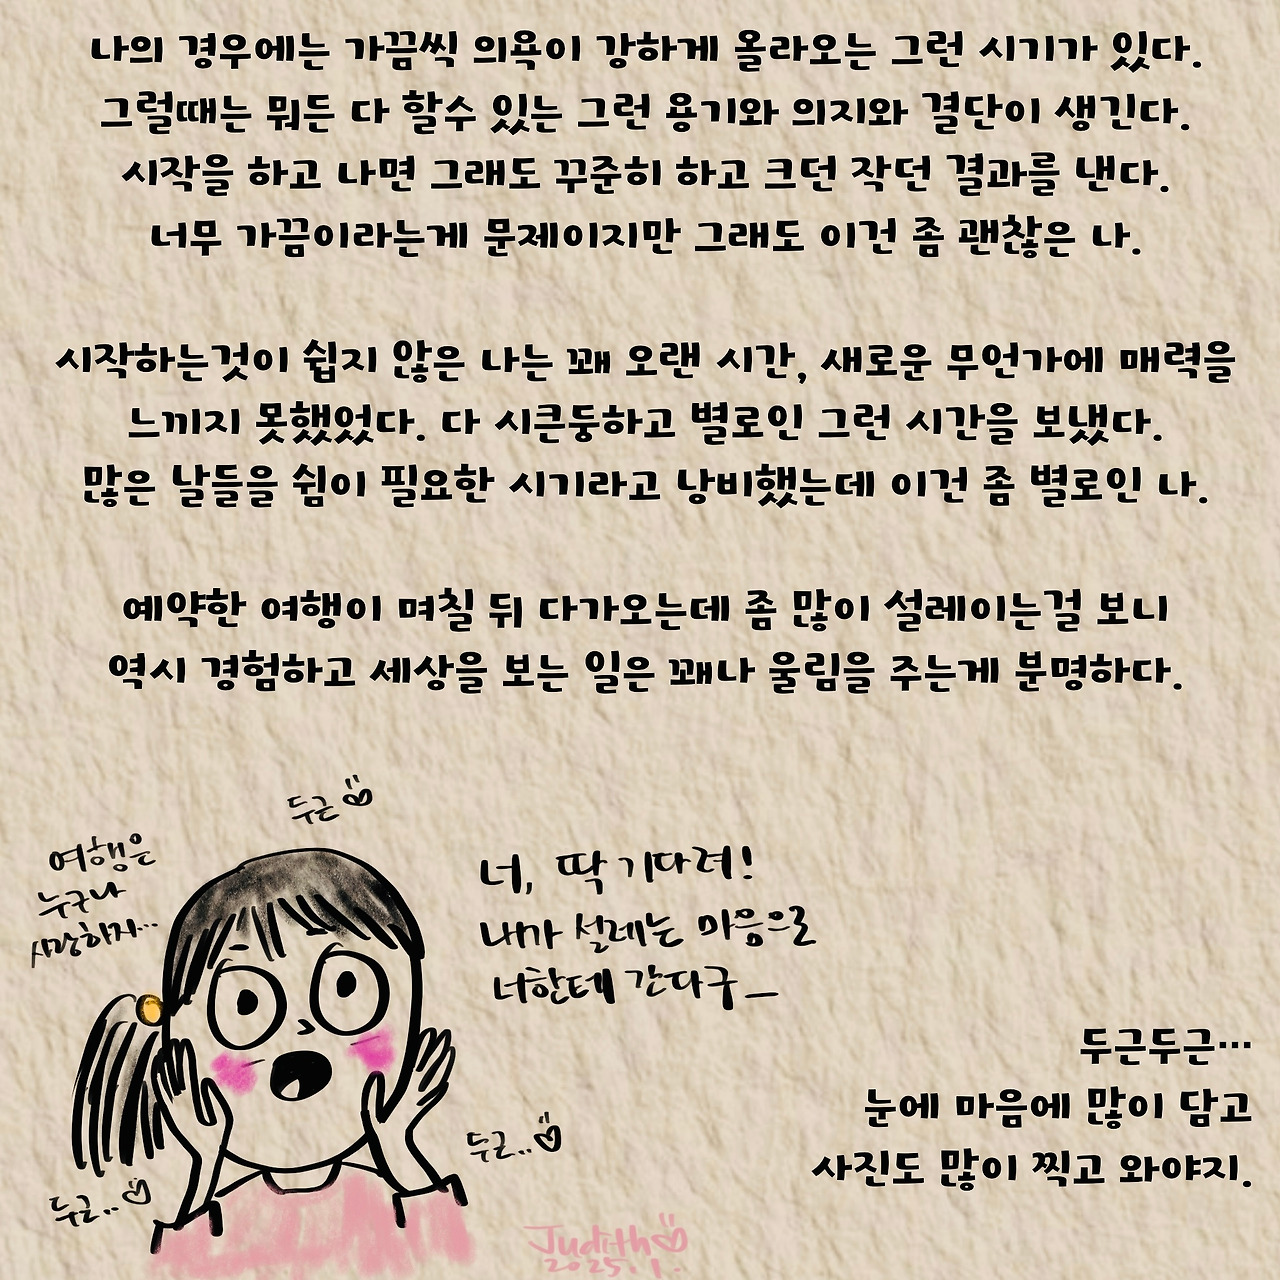 나의 경우에는 가끔씩 의욕이 강하게 올라오는 그런 시기가 있다.
그럴때는 뭐든 다 할수 있는 그런 용기와 의지와 결단이 생긴다.
시작을 하고 나면 그래도 꾸준히 하고 크던 작던 결과를 낸다.
너무 가끔이라는게 문제이지만 그래도 이건 좀 괜찮은 나.
시작하는것이 쉽지 않은 나는 꽤 오랜 시간, 새로운 무언가에 매력을
느끼지 못했었다. 다 시큰둥하고 별로인 그런 시간을 보냈다.
많은 날들을 쉼이 필요한 시기라고 낭비했는데 이건 좀 별로인 나.
예약한 여행이 며칠 뒤 다가오는데 좀 많이 설레이는걸 보니
역시 경험하고 세상을 보는 일은 꽤나 울림을 주는게 분명하다.
두근
여행은
누구나
사랑하지...
너, 딱 기다려!
내가 설레는 마음으로
너한테 간다구_
두근두근...
눈에 마음에 많이 담고
사진도 많이 찍고 와야지.
두근..
두근..
Judith
2025. 1.